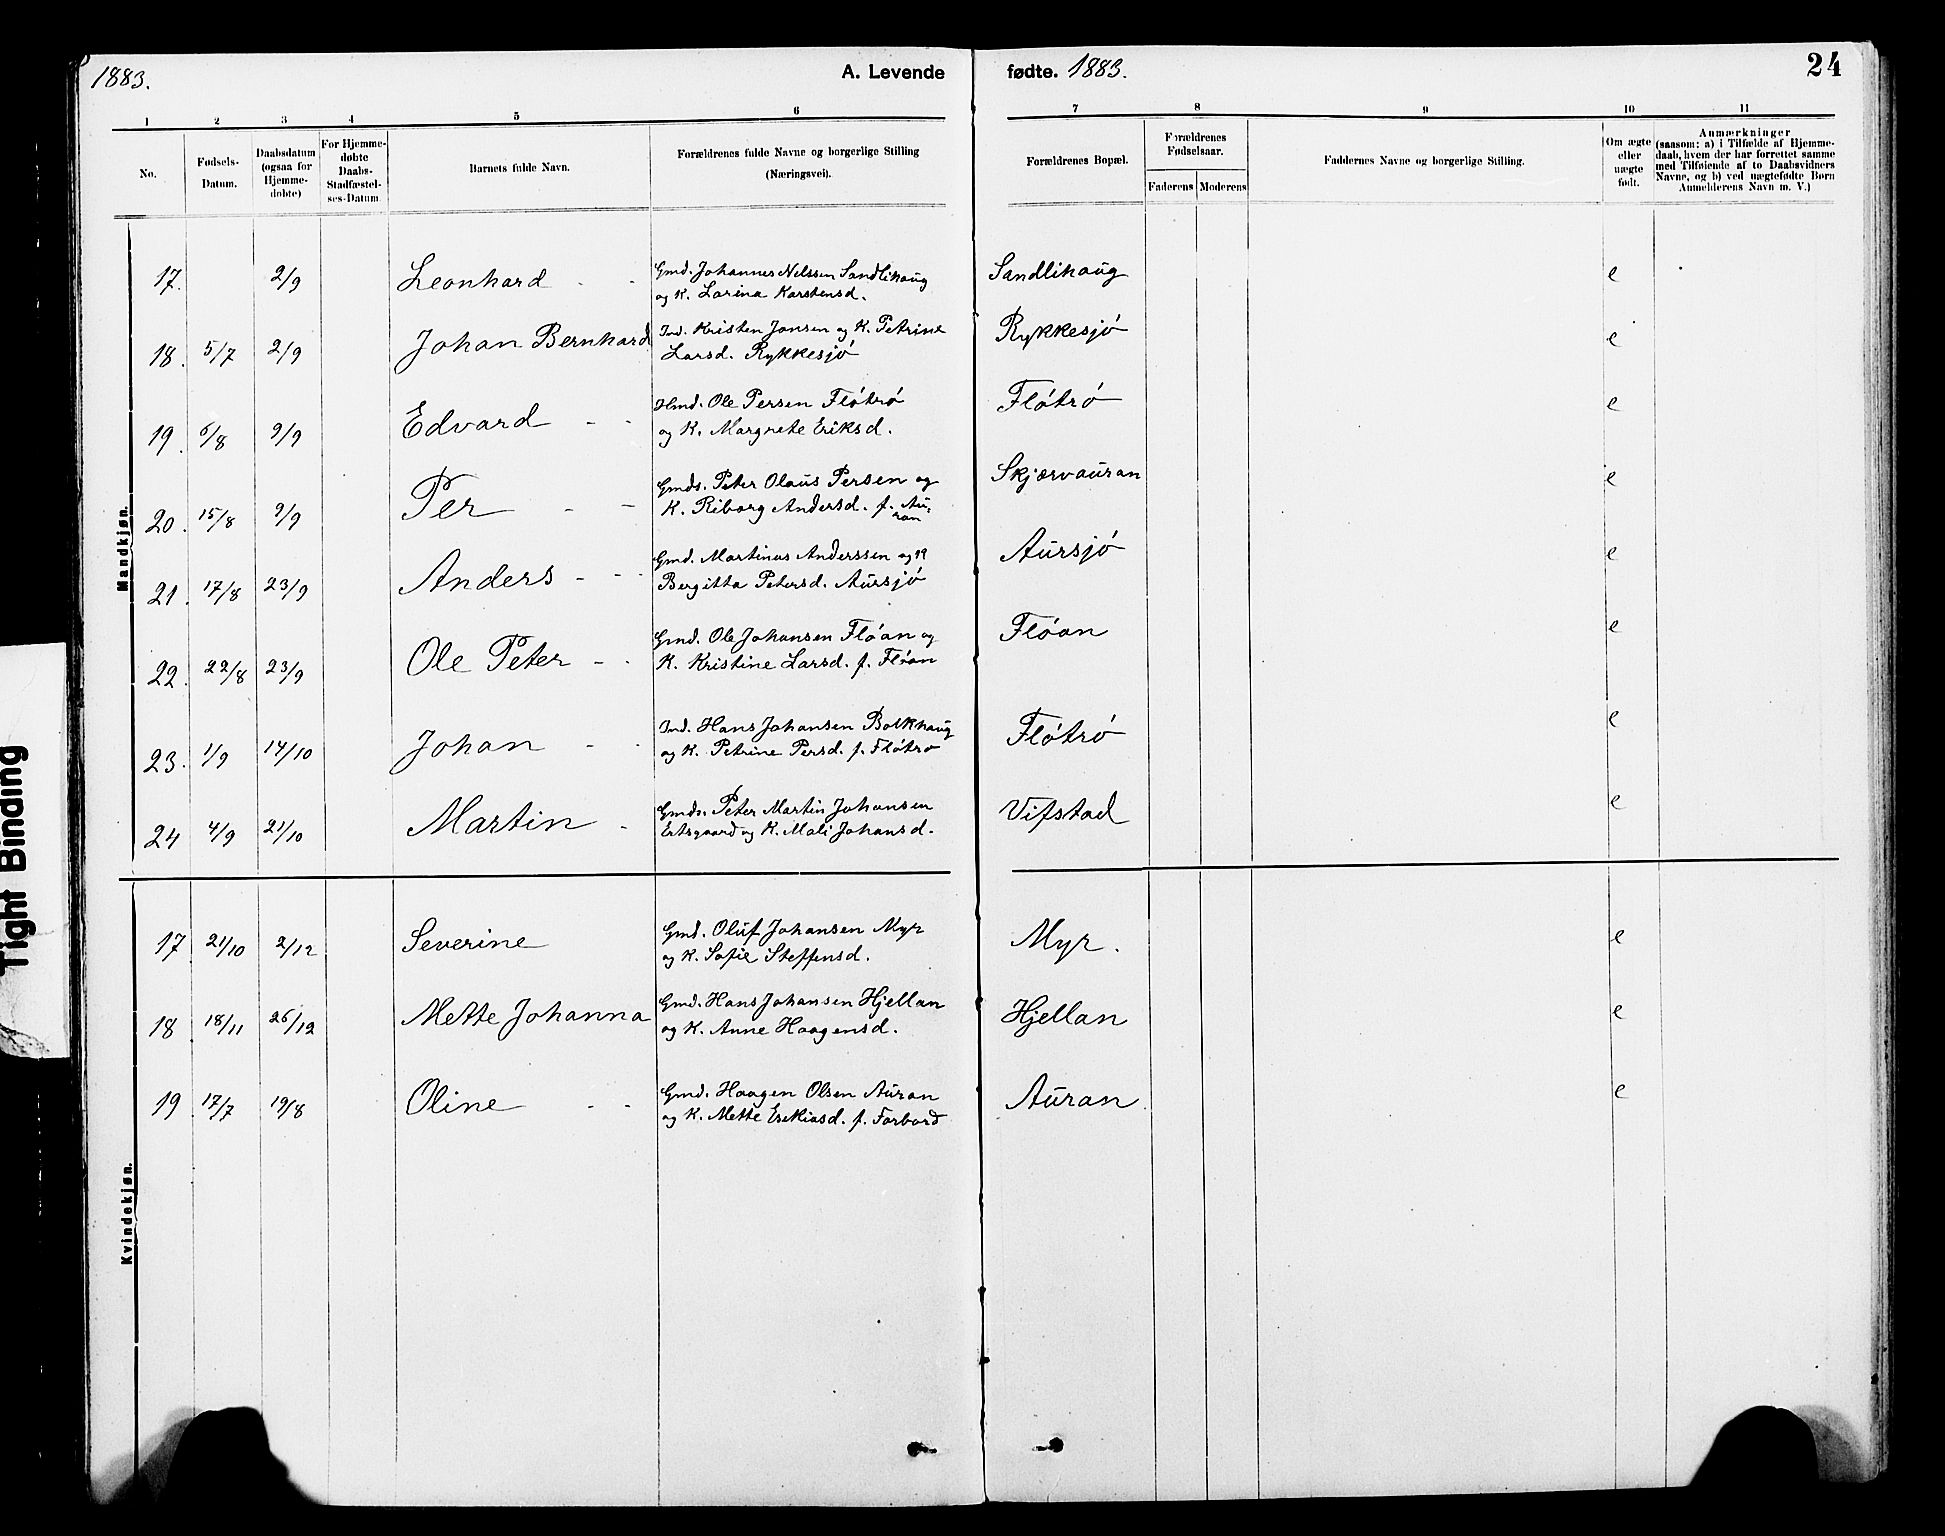 1883.
A. Levende
fødte. 1883.
24
1 2 3 4 5 6 7 8 9 10 11
No.
Fødsels-
Datum.
Daabsdatum
(ogsaa for
Hjemme-
døbte)
For Hjemme-
døbte
Daabs-
Stadfæstel-
ses-Datum
Barnets fulde Navn.
Forældrenes fulde Navne og borgerlige Stilling
(Næringsvei).
Forældrenes Bopæl.
Forældrenes
Fødselsaar.
Faderens Moderens
Faddernes Navne og borgerlige Stilling.
Om ægte
eller
uægte
født.
Anmærkninger
(saasom: a) i Tilfælde af Hjemme-
daab, hvem der har forrettet samme
med Tilføiende af to Daabsvidners
Navne, og b) ved uægtefødte Børn
Anmelderens Navn m. V.)
Mandkjøn.
17. 2/9 Leonhard - - Gmd. Johannes Nelssen Sandlihaug Sandlihaug e
og K. Larina Karstensd.
18. 5/7 2/9 Johan Bernhard Ind. Kristen Jonsen og K. Petrine Rykkesjö e
Larsd. Rykkesjö
19. 6/8 9/9 Edvard - - Hmd. Ole Persen Flötrö Flötrö e
og K. Margrete Eriksd.
20. 15/8 9/9 Per - - Gmds. Peter Olaus Persen og Skjærvauran e
K. Riborg Andersd. f. Au-
ran
21. 17/8 23/9 Anders - - - Gmd. Martinus Anderssen og K Aursjö e
Bergitta Petersd. Aursjö
22. 22/8 23/9 Ole Peter - - Gmd. Ole Johansen Flöan og Flöan e
K. Kristine Larsd. f. Flöan
23. 1/9 14/10 Johan - - Ind. Hans Johansen Bolkhaug Flötrö e
og K. Petrine Persd. f. Flötrö
24 4/9 21/10 Martin - Gmds. Peter Martin Johansen Vifstad e
Ertsgaard og K. Mali Johansd.
Kvindekjøn.
17 21/10 2/12 Severine Gmd. Oluf Johansen Myr Myr. e
og K. Sofie Steffensd.
18 18/11 26/12 Mette Johanna Gmd. Hans Johansen Hjellan Hjellan e
og K. Anne Haagensd.
19 17/7 19/8 Oline - - Gmd. Haagen Olsen Auran Auran e
og K. Mette Esekiasd. f. Forbord
Tight Binding